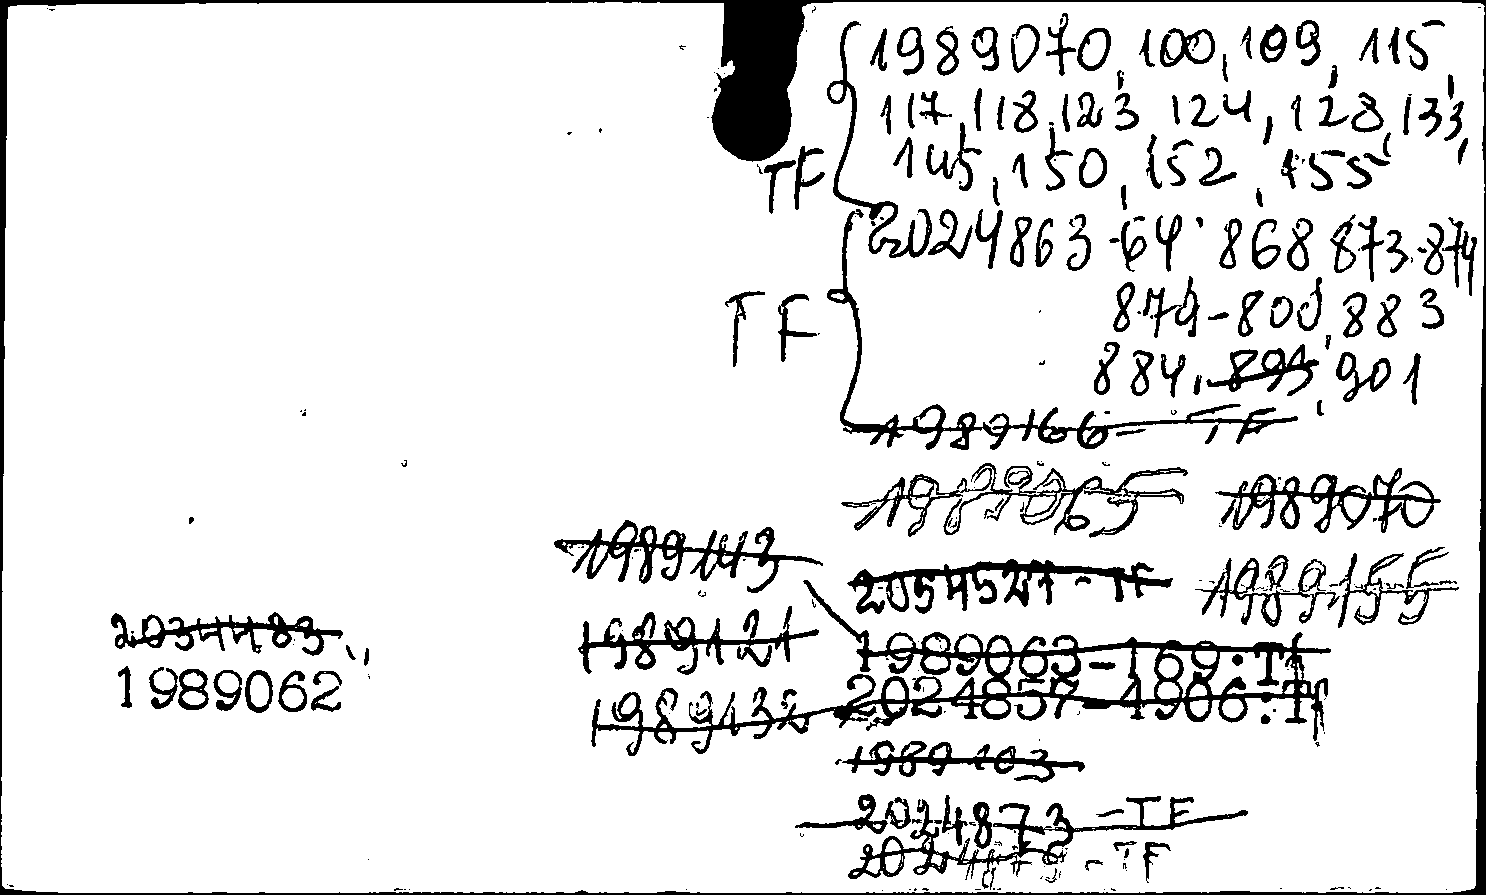 1989070, 100, 109, 115,
117, 118, 123, 124, 128, 133,
TF 145, 150, 152, 155
2024863-64, 868, 873-874
TF 879-800, 883
884, 895, 901
1989166 - TF
1989065 1989070
1989143
2054527-TF 1989155
2034483,,
1989121 1989063-169:Tf
1989062
1989132 2024857-4906:Tf
1989103
2024873 -TF
2024879 -TF